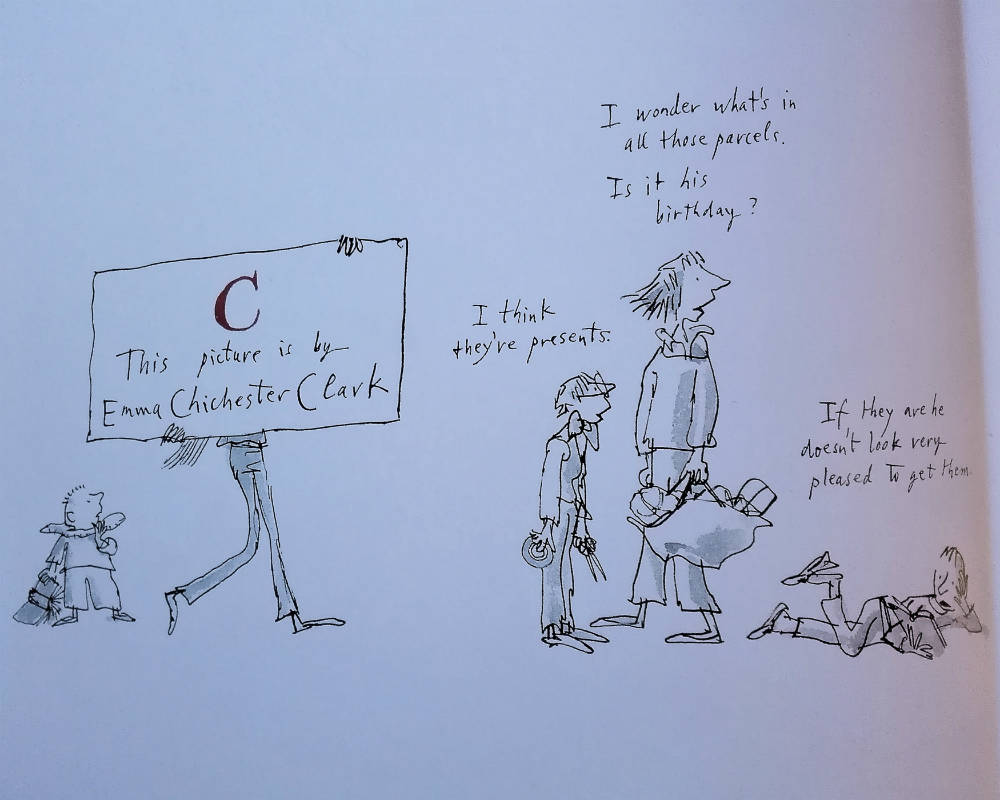 C
This picture is by
Emma Chichester Clark
I think
they're presents.
I wonder what's in
all those parcels.
Is it his
birthday?
If they are he
doesn't look very
pleased to get them.